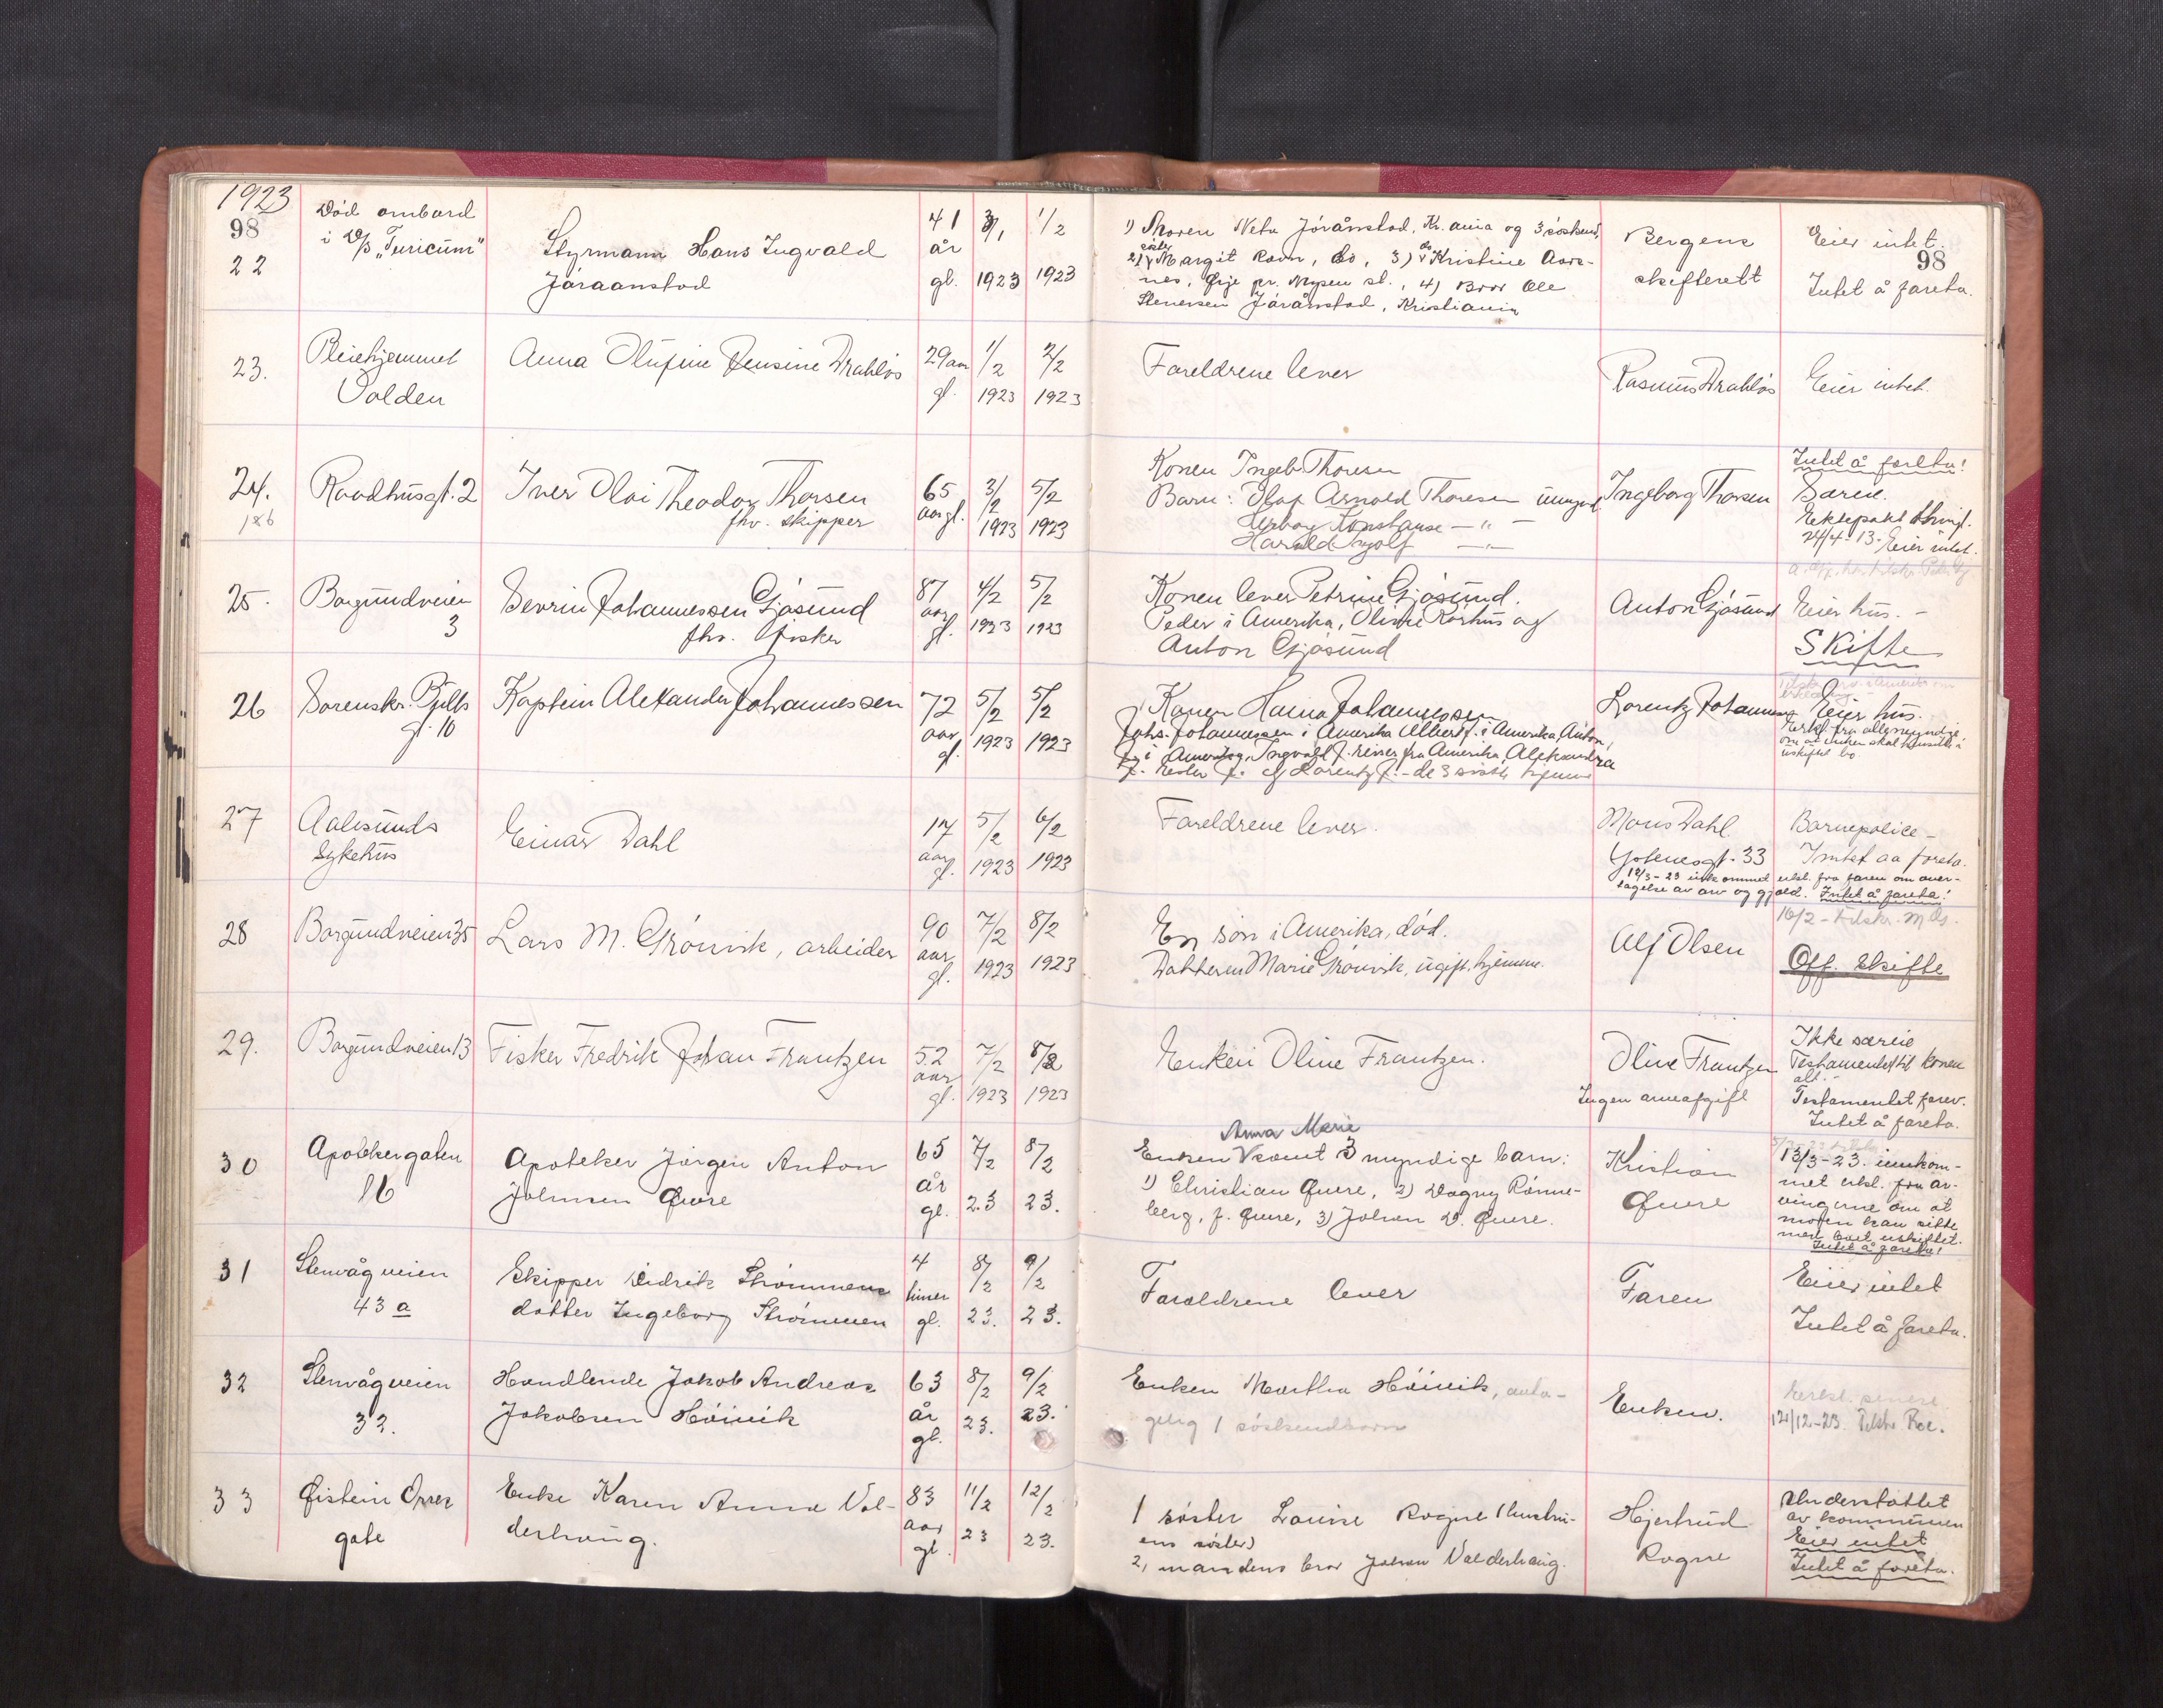 1923
98
22
Död ombord
i D/S "Turicum"
Styrmann Hans Ingvald
Jöraanstad
41
år
gl.
3/1
1923
1/2
1923
1) Moren Neta Jörånstad, Kr.ania og 3 söskend,
2) söster Margit Ravn, do, 3) do Kristine Aars-
nes, Ørje pr. Mysen st., 4) Bror Ole
Stenersen Jörånstad, Kristiania
Bergens
skifterett
Eier intet.
98
Intet å foreta.
23.
Pleiehjemmet
Volden
Anna Olufine Jensine Drabløs
29 aar
gl.
1/2
1923
2/2
1923
Foreldrene lever
Rasmus Drabløs
Eier intet.
24.
186
Raadhusgt. 2
Iver Olai Theodor Thorsen
fhv. skipper
65
aar gl.
3/2
1923
5/2
1923
Konen Ingeb. Thoresen
Barn: Olaf Arnold Thoresen umynd.
Konstanse — " —
Harald — " —
Ingeborg Thorsen
Intet å foreta!
Særeie.
Ektepakt thingl.
24/4-13. Eier intet.
25.
Borgundveien
3
Sevrin Johannessen Gjøsund
fhv. fisker
87
aar
gl.
4/2
1923
5/2
1923
Konen lever Petrine Gjøsund.
Peder i Amerika, Oline Rörhus og
Anton Gjøsund
Anton Gjøsund
Eier hus. -
Skifte
26
Sorenskr. Bulls
gt. 10
Kaptein Alexander Johannessen
72
aar
gl.
5/2
1923
5/2
1923
Konen Hanna Johannessen
Johs. Johannessen i Amerika Albert J. i Amerika, Anton
J. i Amerika, Ingvald J. reiser fra Amerika, Aleksandra
J. J. og Lorentz J. - de 3 sidste hjemme
Lorentz Johannessen
Eier hus.
Erkl. fra alle myndige
om at enken skal hensitte i
uskiftet bo
27
Aalesunds
sykehus
Einar Dahl
17
aar
gl.
5/2
1923
6/2
1923
Foreldrene lever.
Mons Dahl
gt. 33
Barnepolice -
Inntet aa foreta.
12/3-23 innkommet erkl. fra faren om over-
tagelse av arv og gjæld. Intet å foreta!
28
Borgundveien 35
Lars M. Grönvik, arbeider
90
aar
gl.
7/2
1923
8/2
1923
En sön i Amerika, död.
Datteren Marie Grönvik, ugift, hjemme.
Alf Olsen
16/2 - tilskr.
Off. Skifte
29.
Borgundveien 13
Fisker Fredrik Johan Frantzen
52
aar
gl.
7/2
1923
8/2
1923
Enken Oline Frantzen.
Oline Frantzen
Ingen arveafgift
Ikke særeie
Testamentert til konen
alt. -
Testamentet forev.
Intet å foreta.
30
Apotekergaten
16
Apoteker Jörgen Anton
Johnsen Øwre
65
år
gl.
7/2
23
8/2
23.
Anna Marie
Enken samt 3 myndige barn:
1) Christian Øwre, 2) Dagny Rönne-
berg, f. Øwre, 3) Johan D. Øwre.
Kristian
Øwre
13/3-23. innkom-
met erkl. fra ar-
vingerne om at
moren kan sitte
med boet uskiftet.
Intet å foreta!
31
Stenvågveien
43 a
Skipper Didrik Strömmens
datter Ingeborg Strömmen
4
timer
gl.
8/2
23.
9/2
23.
Foreldrene lever
Faren
Eier intet
Intet å foreta.
32
Stenvågveien
32.
Handlende Jakob Andreas
Jakobsen Höivik
63
år
gl.
8/2
23.
9/2
23.
Enken Martha Höivik, anta-
gelig 1 söskendbarn
Enken.
Erkl. senere
12/12-23.
33
Øistein Orres
gate
Enke Karen Anna Val-
derhaug.
83
aar
gl.
11/2
23
12/2
23.
1 söster Louise Rogne (hustru-
ens söster)
2, mandens bror Johan Valderhaug.
Hjertrud
Rogne
Understöttet
av kommunen
Eier intet
Intet å foreta.